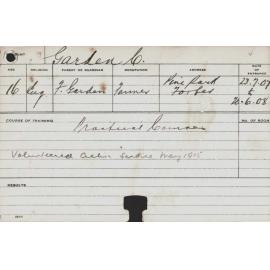 Garden C.
AGE RELIGION PARENT OR GUARDIAN OCCUPATION ADDRESS DATE OF ENTRANCE
16 Eng F. Garden Farmer Pine Park Forbes 23.7.07
to
20.6.08
COURSE OF TRAINING No. OF ROOM
Practical Course
Volunteered Active Service May 1915
RESULTS